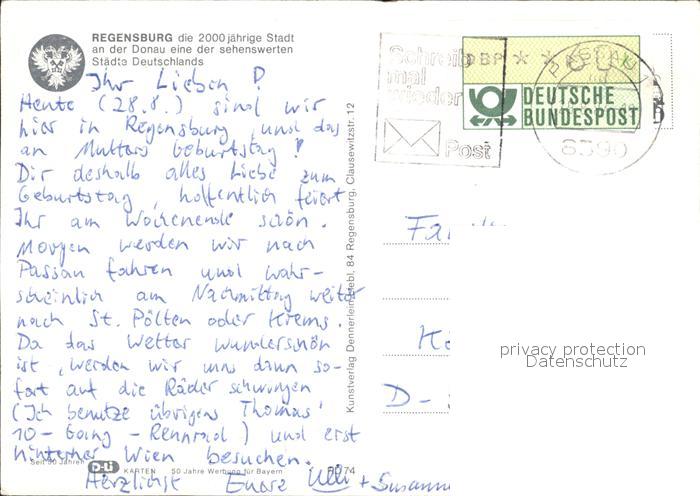 REGENSBURG die 2000jährige Stadt
an der Donau eine der sehenswerten
Städte Deutschlands
Ihr Lieben !
Heute (28.8.) sind wir
hier in Regensburg und das
an Mutters Geburtstag !
Dir deshalb alles Liebe zum
Geburtstag, hoffentlich feiert
Ihr am Wochenende schön.
Morgen werden wir nach
Passau fahren und wahr-
scheinlich am Nachmittag weiter
nach St. Pölten oder Krems.
Da das Wetter wunderschön
ist, werden wir uns dann so-
fort auf die Räder schwingen
(Ich benutze übrigens Thomas'
10-Gang-Rennrad) und erst
hinterher Wien besuchen.
Herzlichst Eure Ulli + Susann
Seit 50 Jahren D-Li KARTEN 50 Jahre Werbung für Bayern
Kunstverlag Dennerlein, Hebl. 84 Regensburg, Clausewitzstr. 12
Schreib
mal
wieder
Post
DBP
DEUTSCHE
BUNDESPOST
PASSAU
8390
Fa
D-
privacy protection
Datenschutz